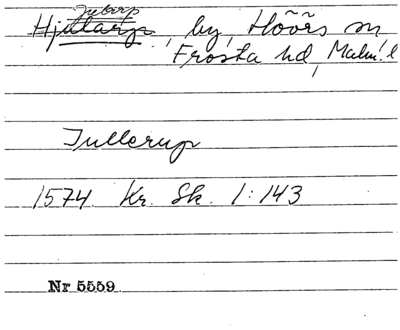 Jularp
Hjularp, by, Höörs sn
Frosta hd, Malm. l
Jullerup
1574 Kr. Sk. 1:143
Nr 5559